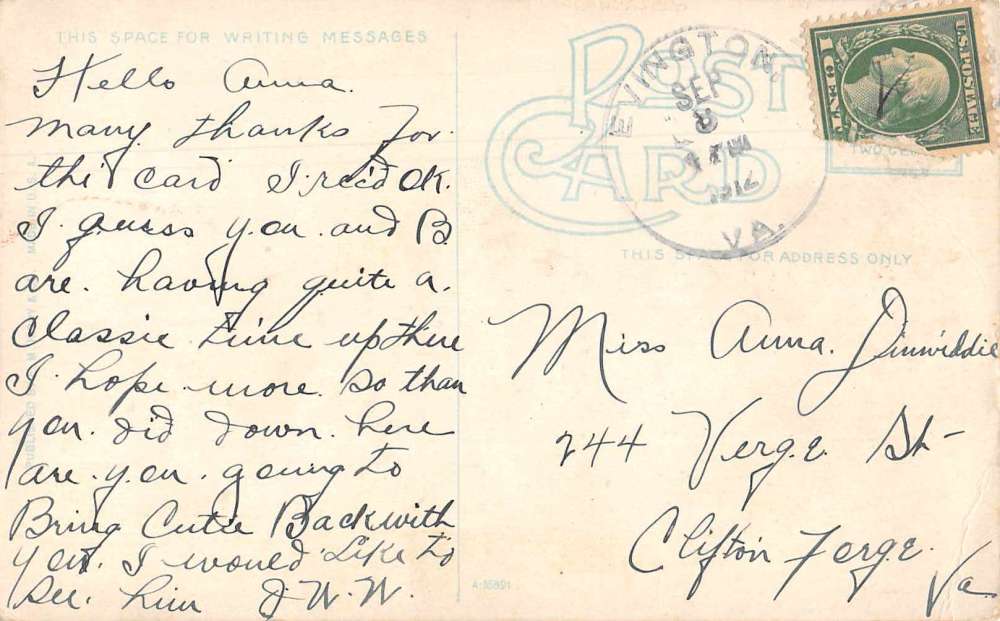 THIS SPACE FOR WRITING MESSAGES
Hello Anna.
many thanks for.
the card I rec'd OK.
I guess you and B
are having quite a
Classie time up there
I hope more so than
you did down here
are you going to
Bring Cutie Back with
you. I would Like to
see him J W. W.
POST CARD
EVINGTON,
SEP
8
1912
VA.
1 CENT 1
U.S. POSTAGE
THIS SPACE FOR ADDRESS ONLY
Miss Anna Dinwiddie
244 Verge St-
Clifton Forge
Va
A-16891